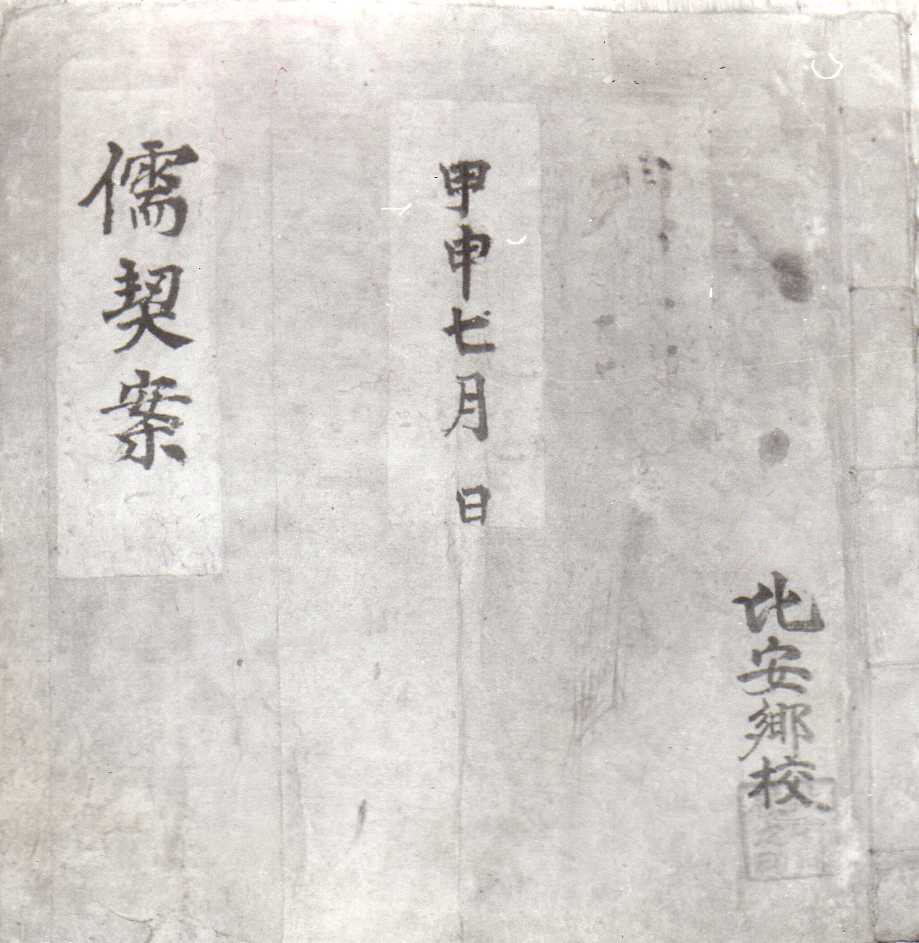 比安鄕校
甲申七月 日
儒契案